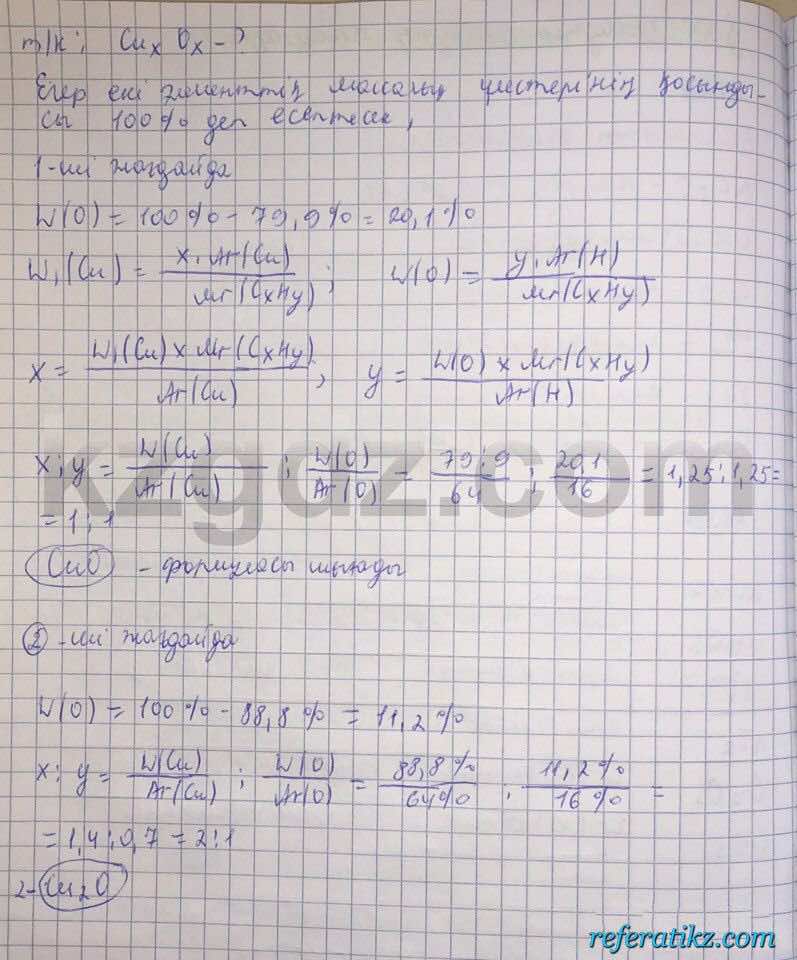 т/к: CuxOx - ?
Егер екі элементтің массалық үлестерінің қосынды-
сы 100% деп есептесек,
1-ші жағдайда
W(O) = 100% - 79,9% = 20,1%
W,(Cu) = x.Ar(Cu) / Mr(CxHy) ; W(O) = y.Ar(H) / Mr(CxHy)
x = W,(Cu) x Mr(CxHy) / Ar(Cu) , y = W(O) x Mr(CxHy) / Ar(H)
x:y = W(Cu) / Ar(Cu) : W(O) / Ar(O) = 79:9 / 64 : 20,1 / 16 = 1,25:1,25=
= 1:1
CuO - формуласы шығады
2 -ші жағдайда
W(O) = 100% - 88,8% = 11,2%
x:y = W(Cu) / Ar(Cu) : W(O) / Ar(O) = 88,8% / 64% : 11,2% / 16% =
= 1,4:0,7 = 2:1
2-Cu2O
kzgdz.com
referatikz.com